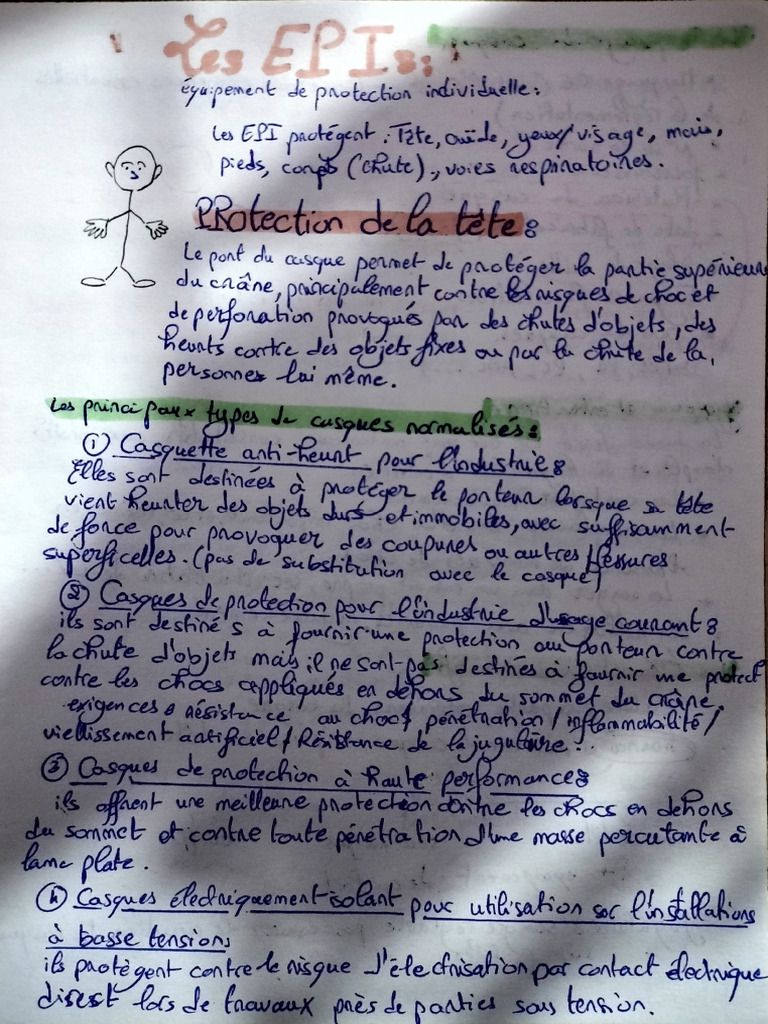 Les EPIs:
équipement de protection individuelle:
Les EPI protégent: Tête, ouïde, yeux/visage, mais,
pieds, corps (chute), voies respiratoires.
PRotection de la tête:
Le port du casque permet de protéger la partie supérieur
du crâne, principalement contre les risques de choc et
de perforation provoqués par des chutes d'objets, des
heurts contre des objets fixes ou par la chute de la,
personnes lui même.
Les principaux types de casques normalisés:
① Casquette anti-heurt pour l'industrie:
Elles sont destinées à protéger le porteur lorsque sa tête
vient heurter des objets durs et immobiles, avec suffisamment
de force pour provoquer des coupures ou autres blessures
superficelles. (pas de substitution avec le casque)
② Casques de protection pour l'industrie d'usage courant:
ils sont destinés à fournir une protection au porteur contre
la chute d'objets mais il ne sont pas destinés à fournir une protect
contre les chocs appliqués en dehors du sommet du crâne.
exigences: résistance au chocs/ pénétration/ inflammabilité/
vieillissement artificiel/ Résistance de la jugulaire.
③ Casques de protection à haute performance:
ils offrent une meilleure protection contre les chocs en dehors
du sommet et contre toute pénétration d'une masse percutante à
lame plate.
④ Casques électriquement isolant pour utilisation sur l'installations
à basse tensions
ils protégent contre le risque d'électrisation par contact électrique
direct lors de travaux près de parties sous tension.